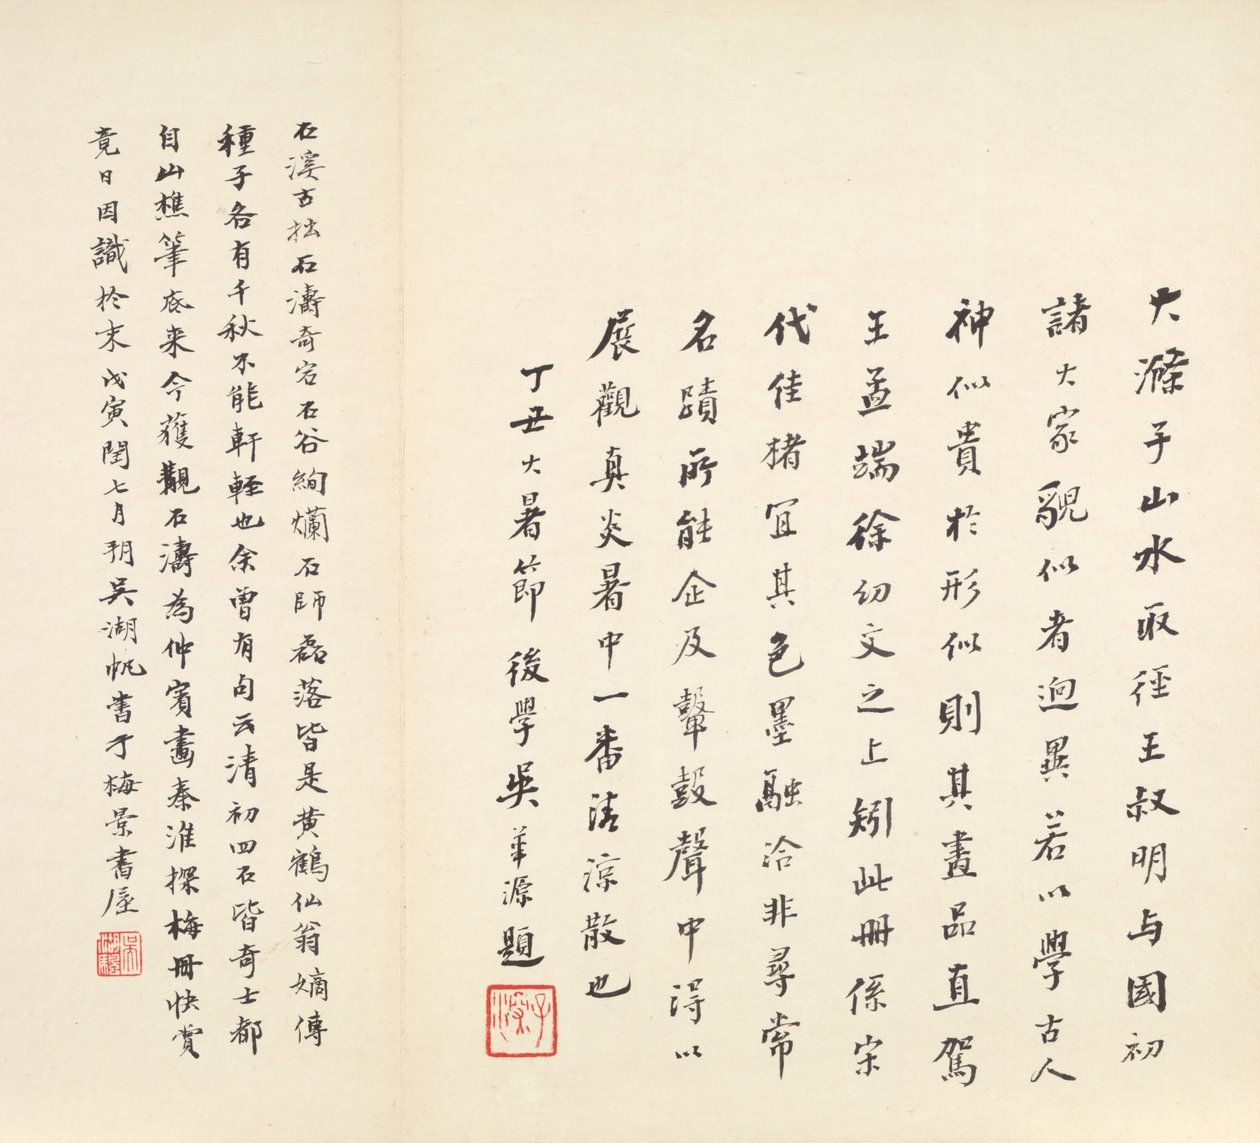 大滌子山水取徑王叔明与國初
諸大家貌似者迥異若以學古人
神似貴於形似則其畫品直駕
王孟端徐幼文之上矧此册係宋
代佳楮宜其色墨融洽非尋常
名蹟所能企及鼙鼓聲中得以
展觀真炎暑中一番清涼散也
丁丑大暑節後學吳華源題
石溪古拙石濤奇宕石谷絢爛石師磊落皆是黃鶴仙翁嫡傳
種子各有千秋不能軒輊也余曾有句云清初四石皆奇士都
自山樵筆底来今獲觀石濤為仲賓畫秦淮探梅册快賞
竟日因識於末戊寅閏七月朔吳湖帆書于梅景書屋